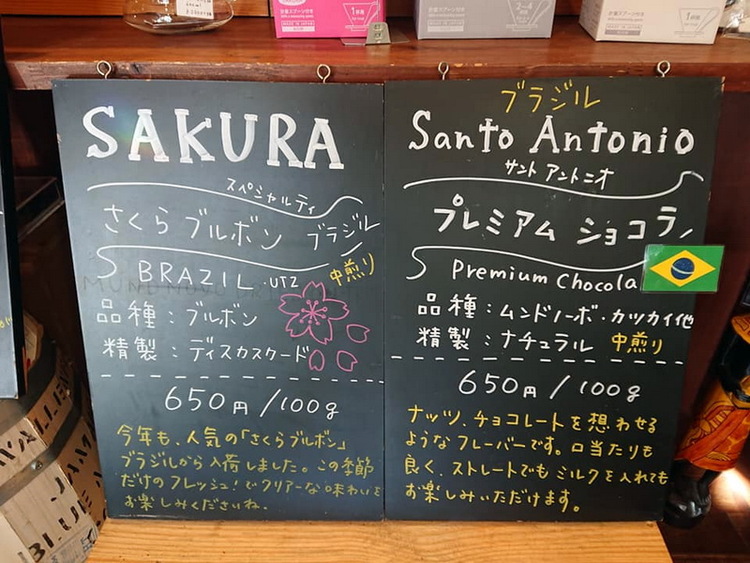 SAKURA
スペシャルティ
さくら ブルボン ブラジル
BRAZIL・UTZ 中煎り
品種：ブルボン
精製：ディスカスケード
650円/100g
今年も、人気の「さくらブルボン」
ブラジルから入荷しました。この季節
だけのフレッシュ！でクリアーな味わいを
お楽しみくださいね。
ブラジル
Santo Antonio
サント アントニオ
プレミアム ショコラ
Premium Chocola
品種：ムンドノーボ・カツカイ他
精製：ナチュラル 中煎り
650円/100g
ナッツ、チョコレートを想わせる
ようなフレーバーです。口当たりも
良く、ストレートでもミルクを入れても
お楽しみいただけます。